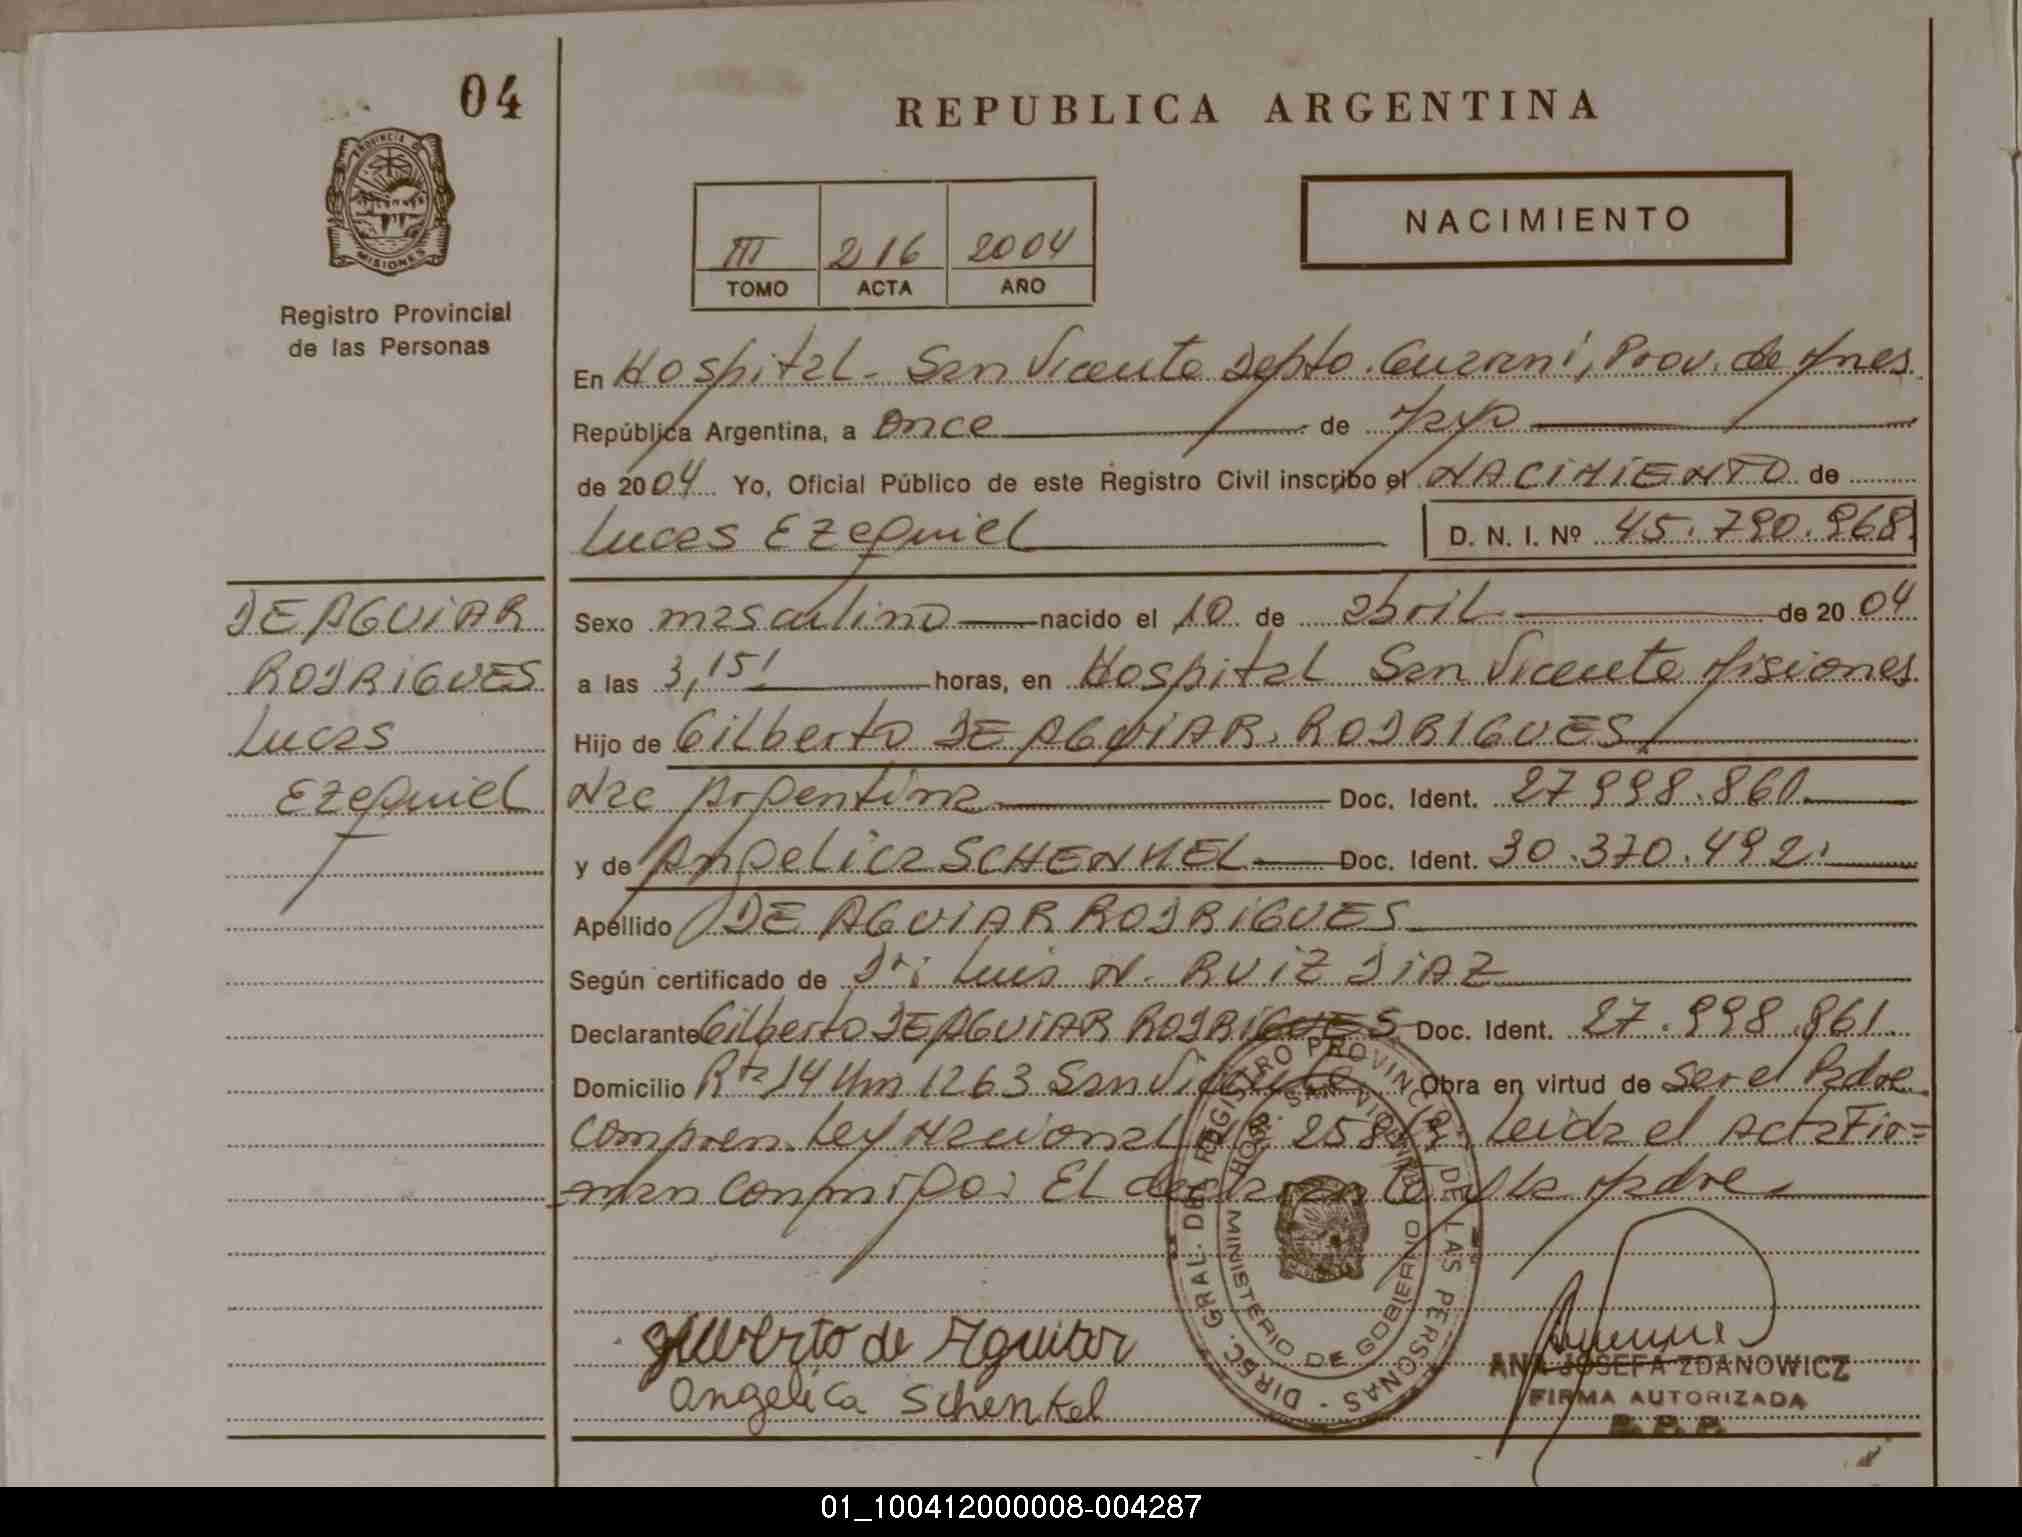 04
REPUBLICA ARGENTINA
PROVINCIA D
MISIONES
Registro Provincial
de las Personas
III 216 2004
TOMO ACTA AÑO
NACIMIENTO
En Hospital - San Vicente Depto. Guarani, Prov. de Mnes.
República Argentina, a once de Mayo
de 2004 Yo, Oficial Público de este Registro Civil inscribo el NACIMIENTO de
Lucas Ezequiel D. N. I. Nº 45.790.968
DE AGUIAR
RODRIGUES
Lucas
Ezequiel
Sexo masculino nacido el 10 de abril de 2004
a las 3,15' horas, en Hospital San Vicente Misiones.
Hijo de Gilberto DE AGUIAR RODRIGUES
Nac Argentina Doc. Ident. 27998.861
y de Angelica SCHENKEL Doc. Ident. 30.370.492
Apellido DE AGUIAR RODRIGUES
Según certificado de Dr: Luis N. RUIZ DIAZ
Declarante Gilberto DE AGUIAR RODRIGUES Doc. Ident. 27.998.861
Domicilio Rta 14 Km 1263 San Vicente Obra en virtud de Ser el Padre
Compren. Ley Nacional Nº 258 Leida el Acta Fir=
=man conmigo: El declarante y la Madre
DIREC. GRAL. DEL REGISTRO PROVINCIAL DE LAS PERSONAS -
HOSP. SAN VICENTE
MINISTERIO DE GOBIERNO
gilberto de Aguiar
Angelica Schenkel
ANA JOSEFA ZDANOWICZ
FIRMA AUTORIZADA
R.P.P.
01_100412000008-004287